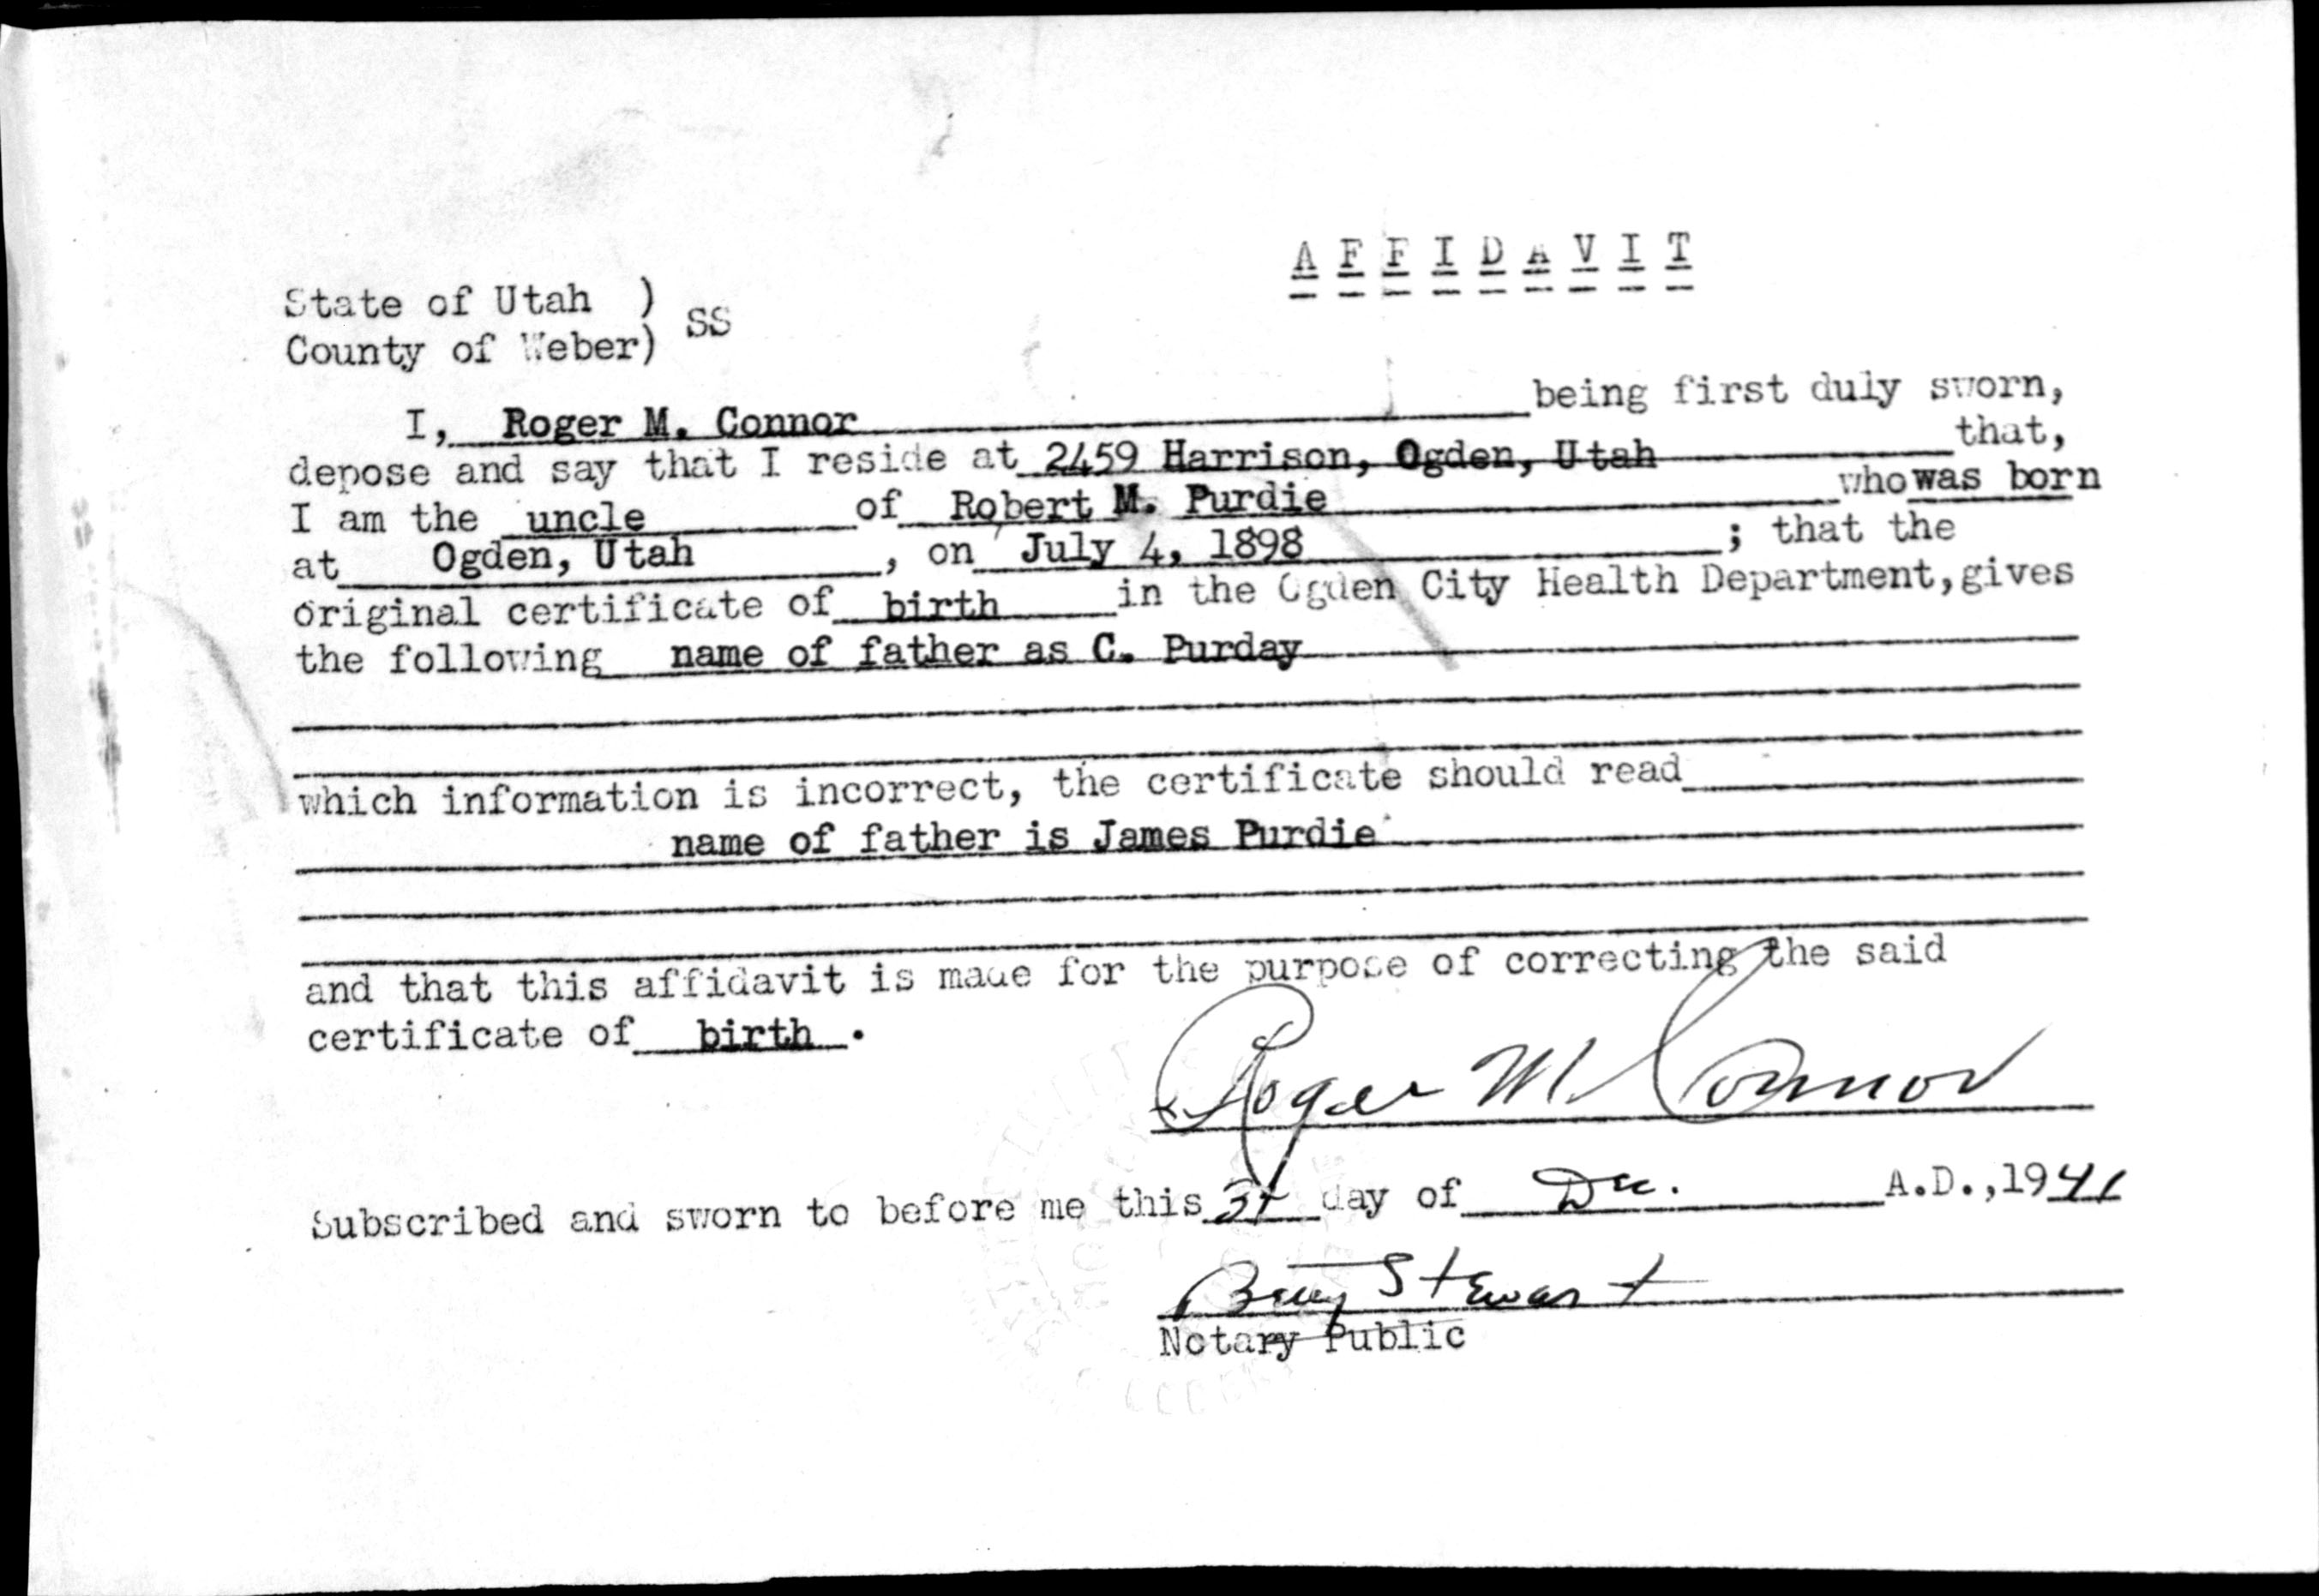 A F F I D A V I T
State of Utah )
County of Weber) SS
I, Roger M. Connor being first duly sworn,
depose and say that I reside at 2459 Harrison, Ogden, Utah that,
I am the uncle of Robert M. Purdie who was born
at Ogden, Utah, on July 4, 1898; that the
original certificate of birth in the Ogden City Health Department, gives
the following name of father as C. Purday
which information is incorrect, the certificate should read
name of father is James Purdie
and that this affidavit is made for the purpose of correcting the said
certificate of birth.
Roger M Connor
Subscribed and sworn to before me this 31 day of Dec. A.D., 1941
Stewart
Notary Public